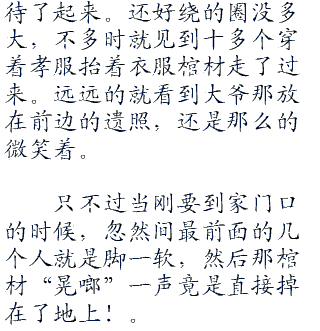 待了起来。还好绕的圈没多
大，不多时就见到十多个穿
着孝服抬着衣服棺材走了过
来。远远的就看到大爷那放
在前边的遗照，还是那么的
微笑着。
只不过当刚要到家门口
的时候，忽然间最前面的几
个人就是脚一软，然后那棺
材“晃啷”一声竟是直接掉
在了地上！。